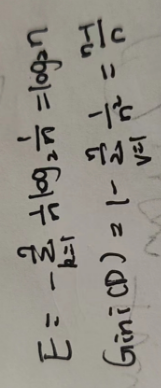 E = - Σ_{k=1}^{n} 1/n log₂ 1/n = log₂n
Gini(D) = 1 - Σ_{v=1}^{n} 1/n² = n-1/n